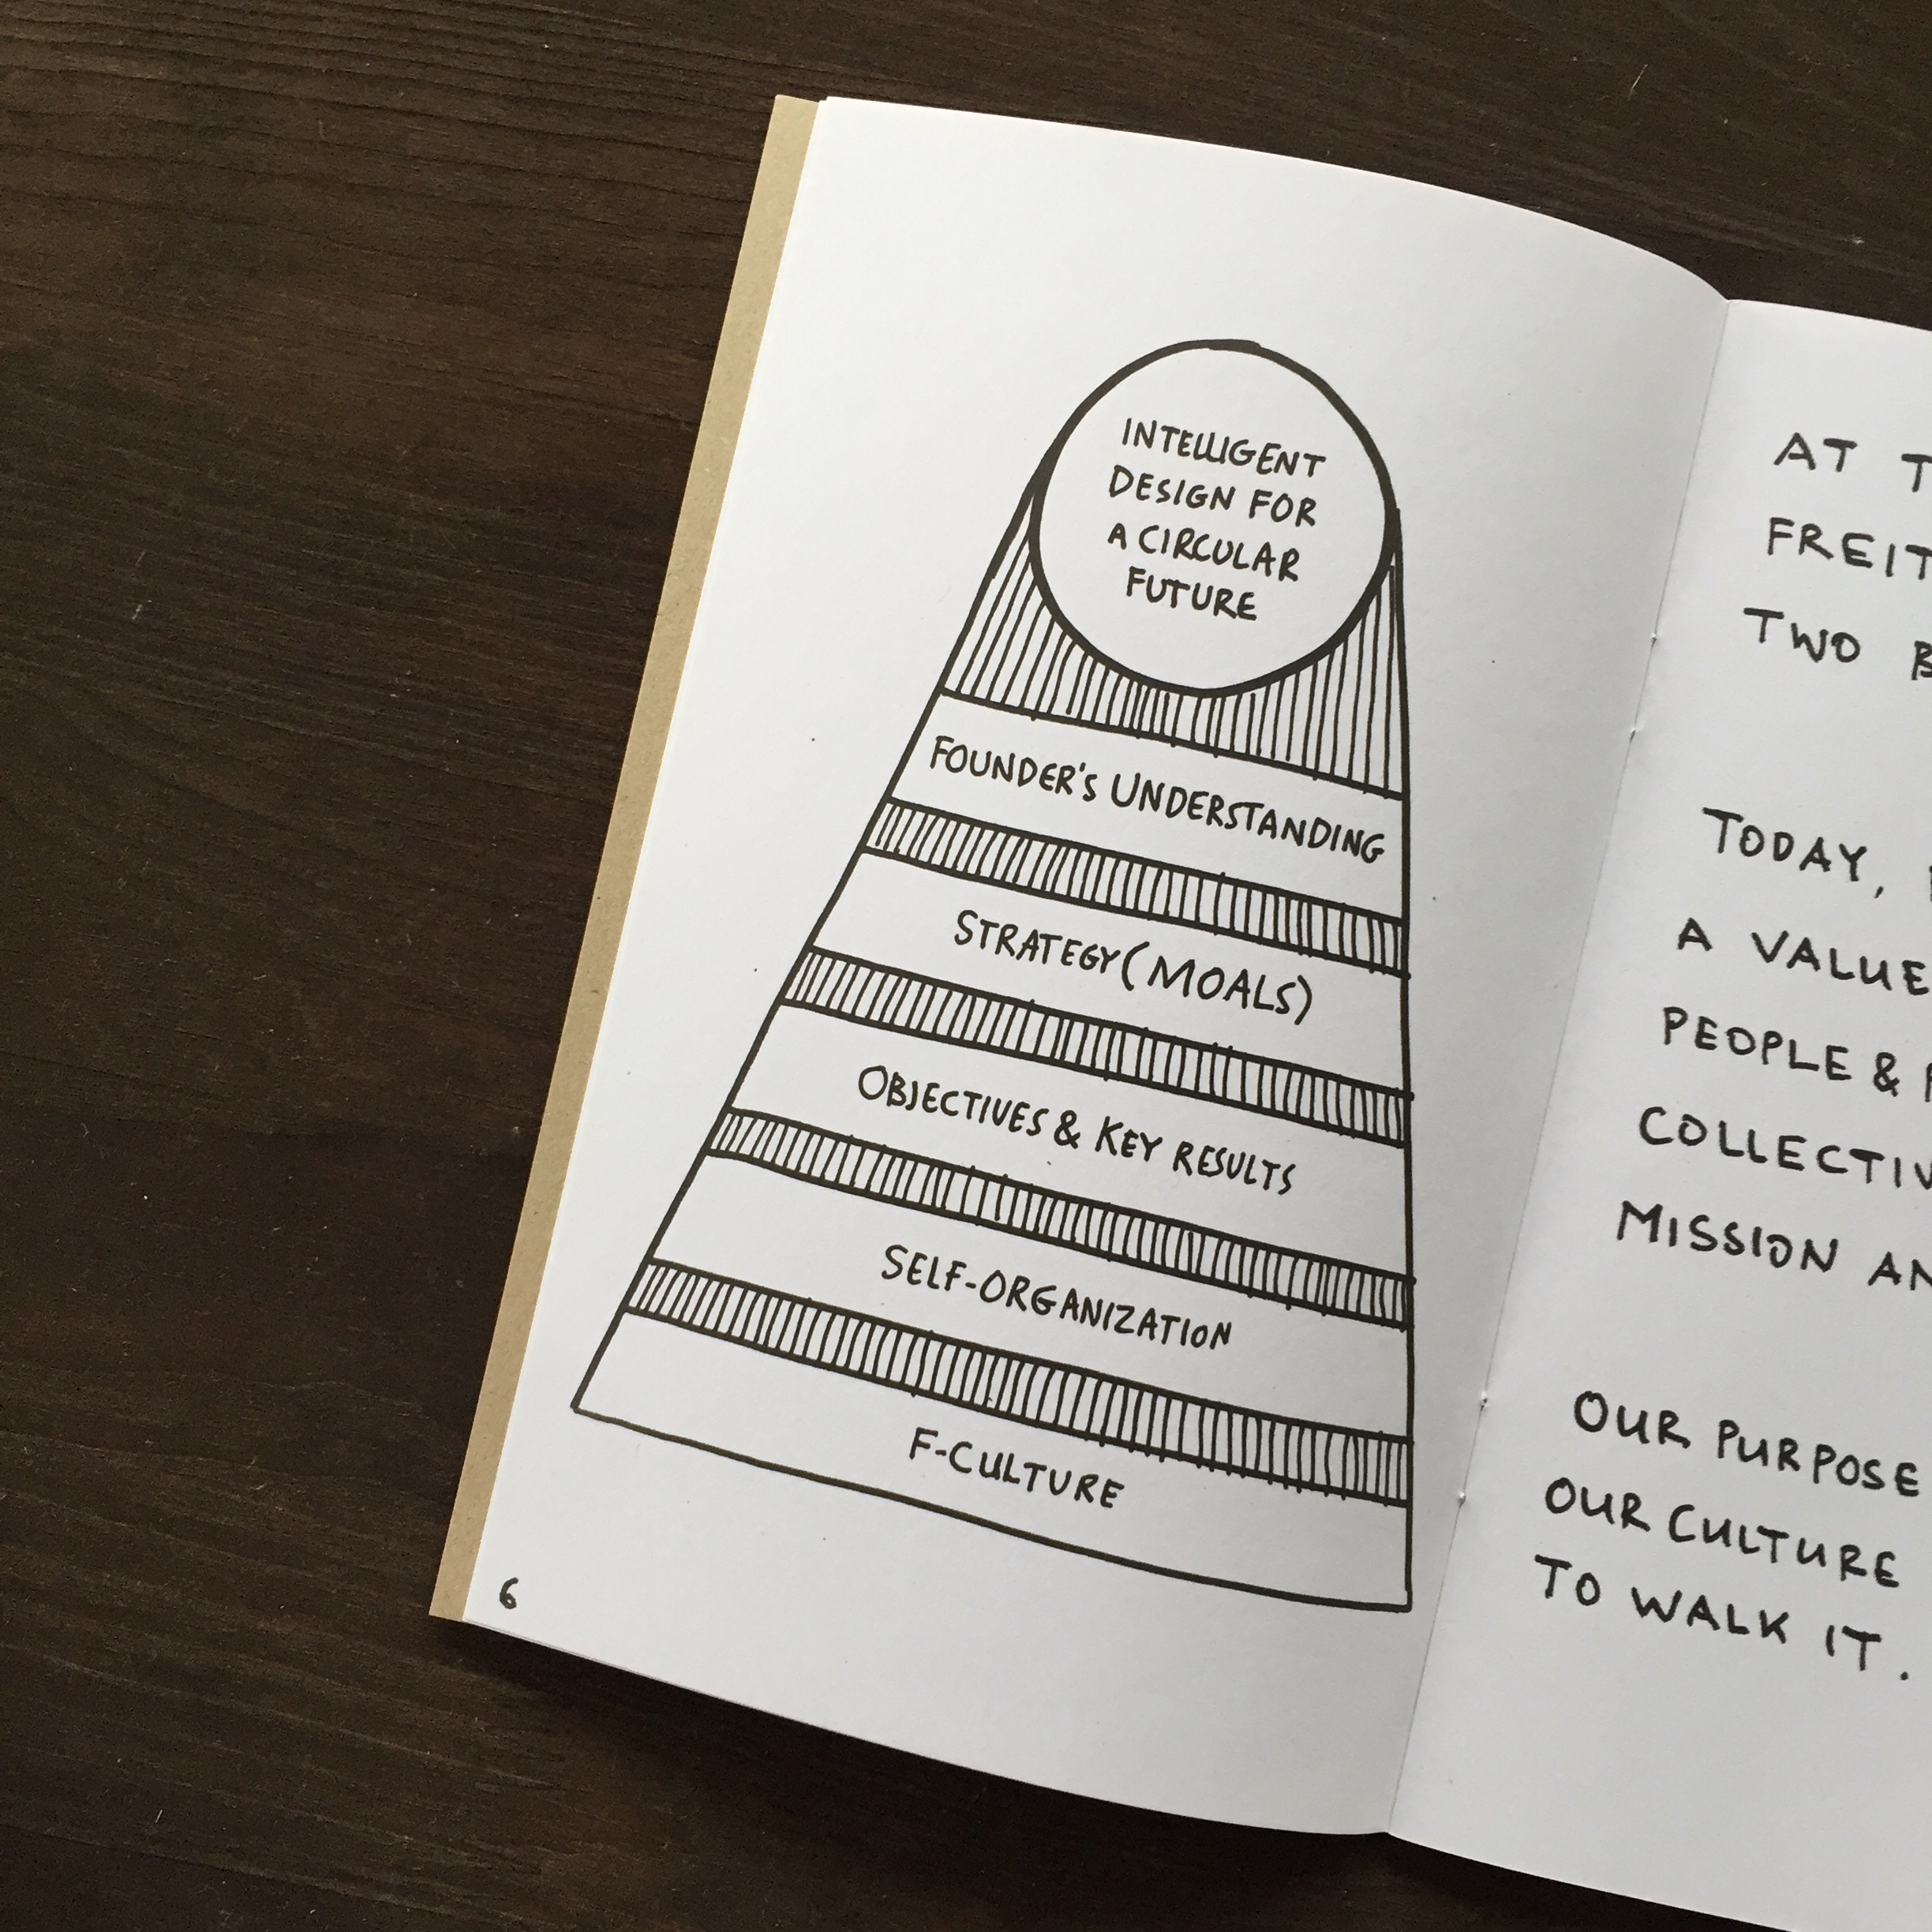 INTELLIGENT
DESIGN FOR
A CIRCULAR
FUTURE
FOUNDER'S UNDERSTANDING
STRATEGY (MOALS)
OBJECTIVES & KEY RESULTS
SELF-ORGANIZATION
F-CULTURE
6
AT
TWO
TODAY,
A VALUE
PEOPLE &
MISSION
OUR PURPOSE
OUR CULTURE
TO WALK IT.